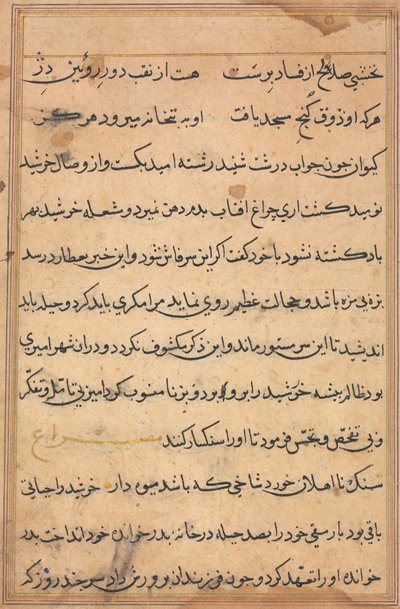 نخشبی صلاح از فساد برست هست از نقب دور روئین دژ
هر که او ذوق کنج مسجد یافت او به بتخانه میرود هرگز
کیوان چون جواب درشت شنید رشته امید بگسست و از وصال خورشید
نومید گشت آری چراغ آفتاب بدم دهن نمیرد و شعله خورشید بهر
باد کشته نشود با خود گفت اگر این سر فاش شود و این خبر بعطارد رسد
بزه بی مزه باشد و خجالت عظیم روی نماید مرا مکری باید کرد و حیله باید
اندیشید تا این سر مستور ماند و این ذکر مکشوف نگردد و در آن شهر امیری
بود ظالم پیشه خورشید را برو بود و بزنا منسوب کرد امیر بی تامل و تفکر
و بی تفحص و تجسس فرمود تا او را سنگسار کنند مصراع
سنگ نااهلان خورد شاخی که باشد میوه دار خورشید را حیاتی
باقی بود بارمقی خود را بصد حیله در خانه بدر خوانده خود انداخت بدر
خوانده او را تعهد کرد و چون فرزندان پرورش داد سر چند روز که